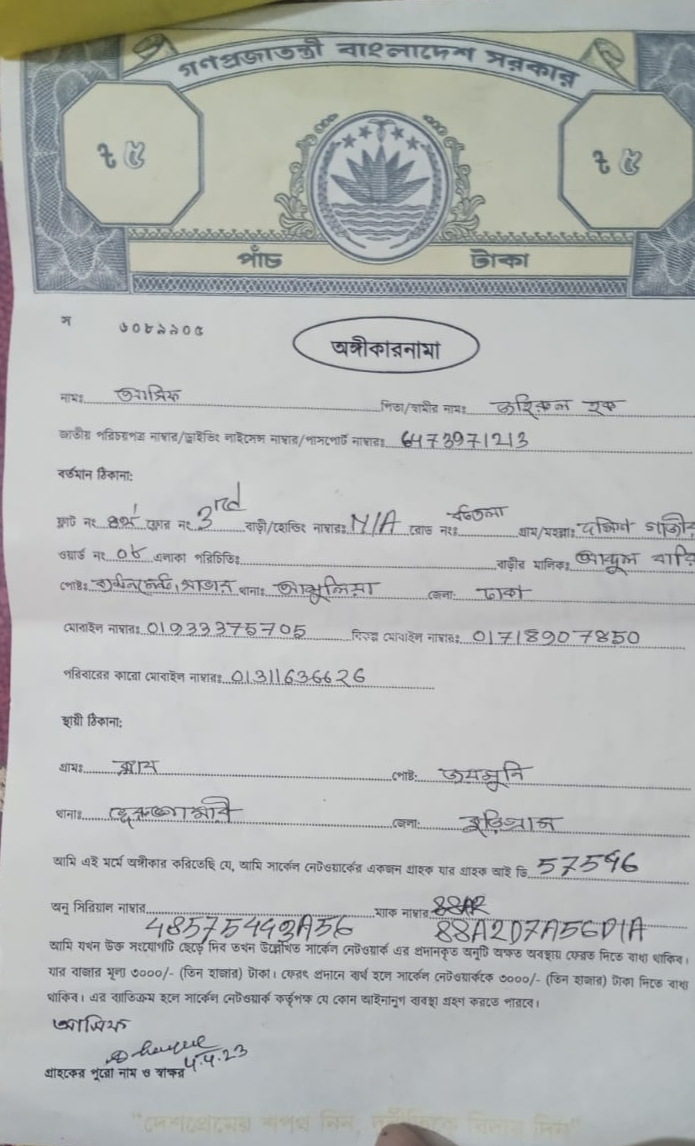 গণপ্রজাতন্ত্রী বাংলাদেশ সরকার
৳ ৫ ৳ ৫
পাঁচ টাকা
অঙ্গীকারনামা
নামঃ আসিফ পিতা/স্বামীর নামঃ হক
জাতীয় পরিচয়পত্র নাম্বার/ড্রাইভিং লাইসেন্স নাম্বার/পাসপোর্ট নাম্বারঃ 6473971213
বর্তমান ঠিকানা:
ফ্লাট নং ফ্লোর নং 3rd বাড়ী/হোল্ডিং নাম্বারঃ N/A রোড নংঃ গ্রাম/মহল্লাঃ দক্ষিন
ওয়ার্ড নং ০৮ এলাকা পরিচিতিঃ বাড়ীর মালিকঃ আবুল
পোষ্টঃ সাভার থানাঃ আশুলিয়া জেলা: ঢাকা
মোবাইল নাম্বারঃ 01933375705 বিকল্প মোবাইল নাম্বারঃ 01718907850
পরিবারের কারো মোবাইল নাম্বারঃ 01311636626
স্থায়ী ঠিকানা:
গ্রামঃ পোষ্ট: জয়মনি
থানাঃ জেলা: কুড়িগ্রাম
আমি এই মর্মে অঙ্গীকার করিতেছি যে, আমি সার্কেল নেটওয়ার্কের একজন গ্রাহক যার গ্রাহক আই ডি 57596
অনু সিরিয়াল নাম্বার ম্যাক নাম্বার
48575443A56 88A2D7A56D1A
আমি যখন উক্ত সংযোগটি ছেড়ে দিব তখন উল্লেখিত সার্কেল নেটওয়ার্ক এর প্রদানকৃত অনুটি অক্ষত অবস্থায় ফেরত দিতে বাধ্য থাকিব।
যার বাজার মূল্য ৩০০০/- (তিন হাজার) টাকা। ফেরৎ প্রদানে ব্যর্থ হলে সার্কেল নেটওয়ার্ককে ৩০০০/- (তিন হাজার) টাকা দিতে বাধ্য
থাকিব। এর ব্যতিক্রম হলে সার্কেল নেটওয়ার্ক কর্তৃপক্ষ যে কোন আইনানুগ ব্যবস্থা গ্রহন করতে পারবে।
আসিফ
4.4.23
গ্রাহকের পুরো নাম ও স্বাক্ষর
"দেশপ্রেমের শপথ নিন, দুর্নীতিকে বিদায় দিন"